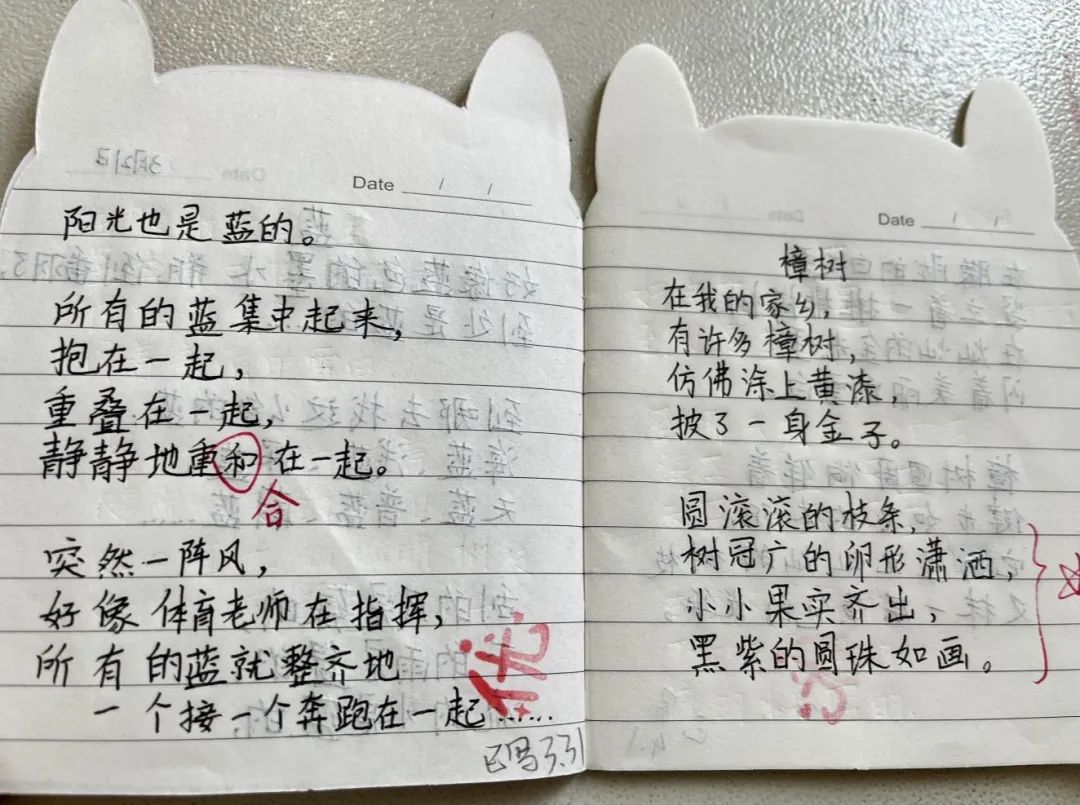 Date / /
阳光也是蓝的。
所有的蓝集中起来,
抱在一起,
重叠在一起,
静静地重和在一起。
合
突然一阵风,
好像体育老师在指挥,
所有的蓝就整齐地
一个接一个奔跑在一起……
优+
3.31
Date / /
樟树
在我的家乡,
有许多樟树,
仿佛涂上黄漆,
披了一身金子。
圆滚滚的枝条,
树冠广的卵形潇洒,
小小果实齐出,
黑紫的圆珠如画。